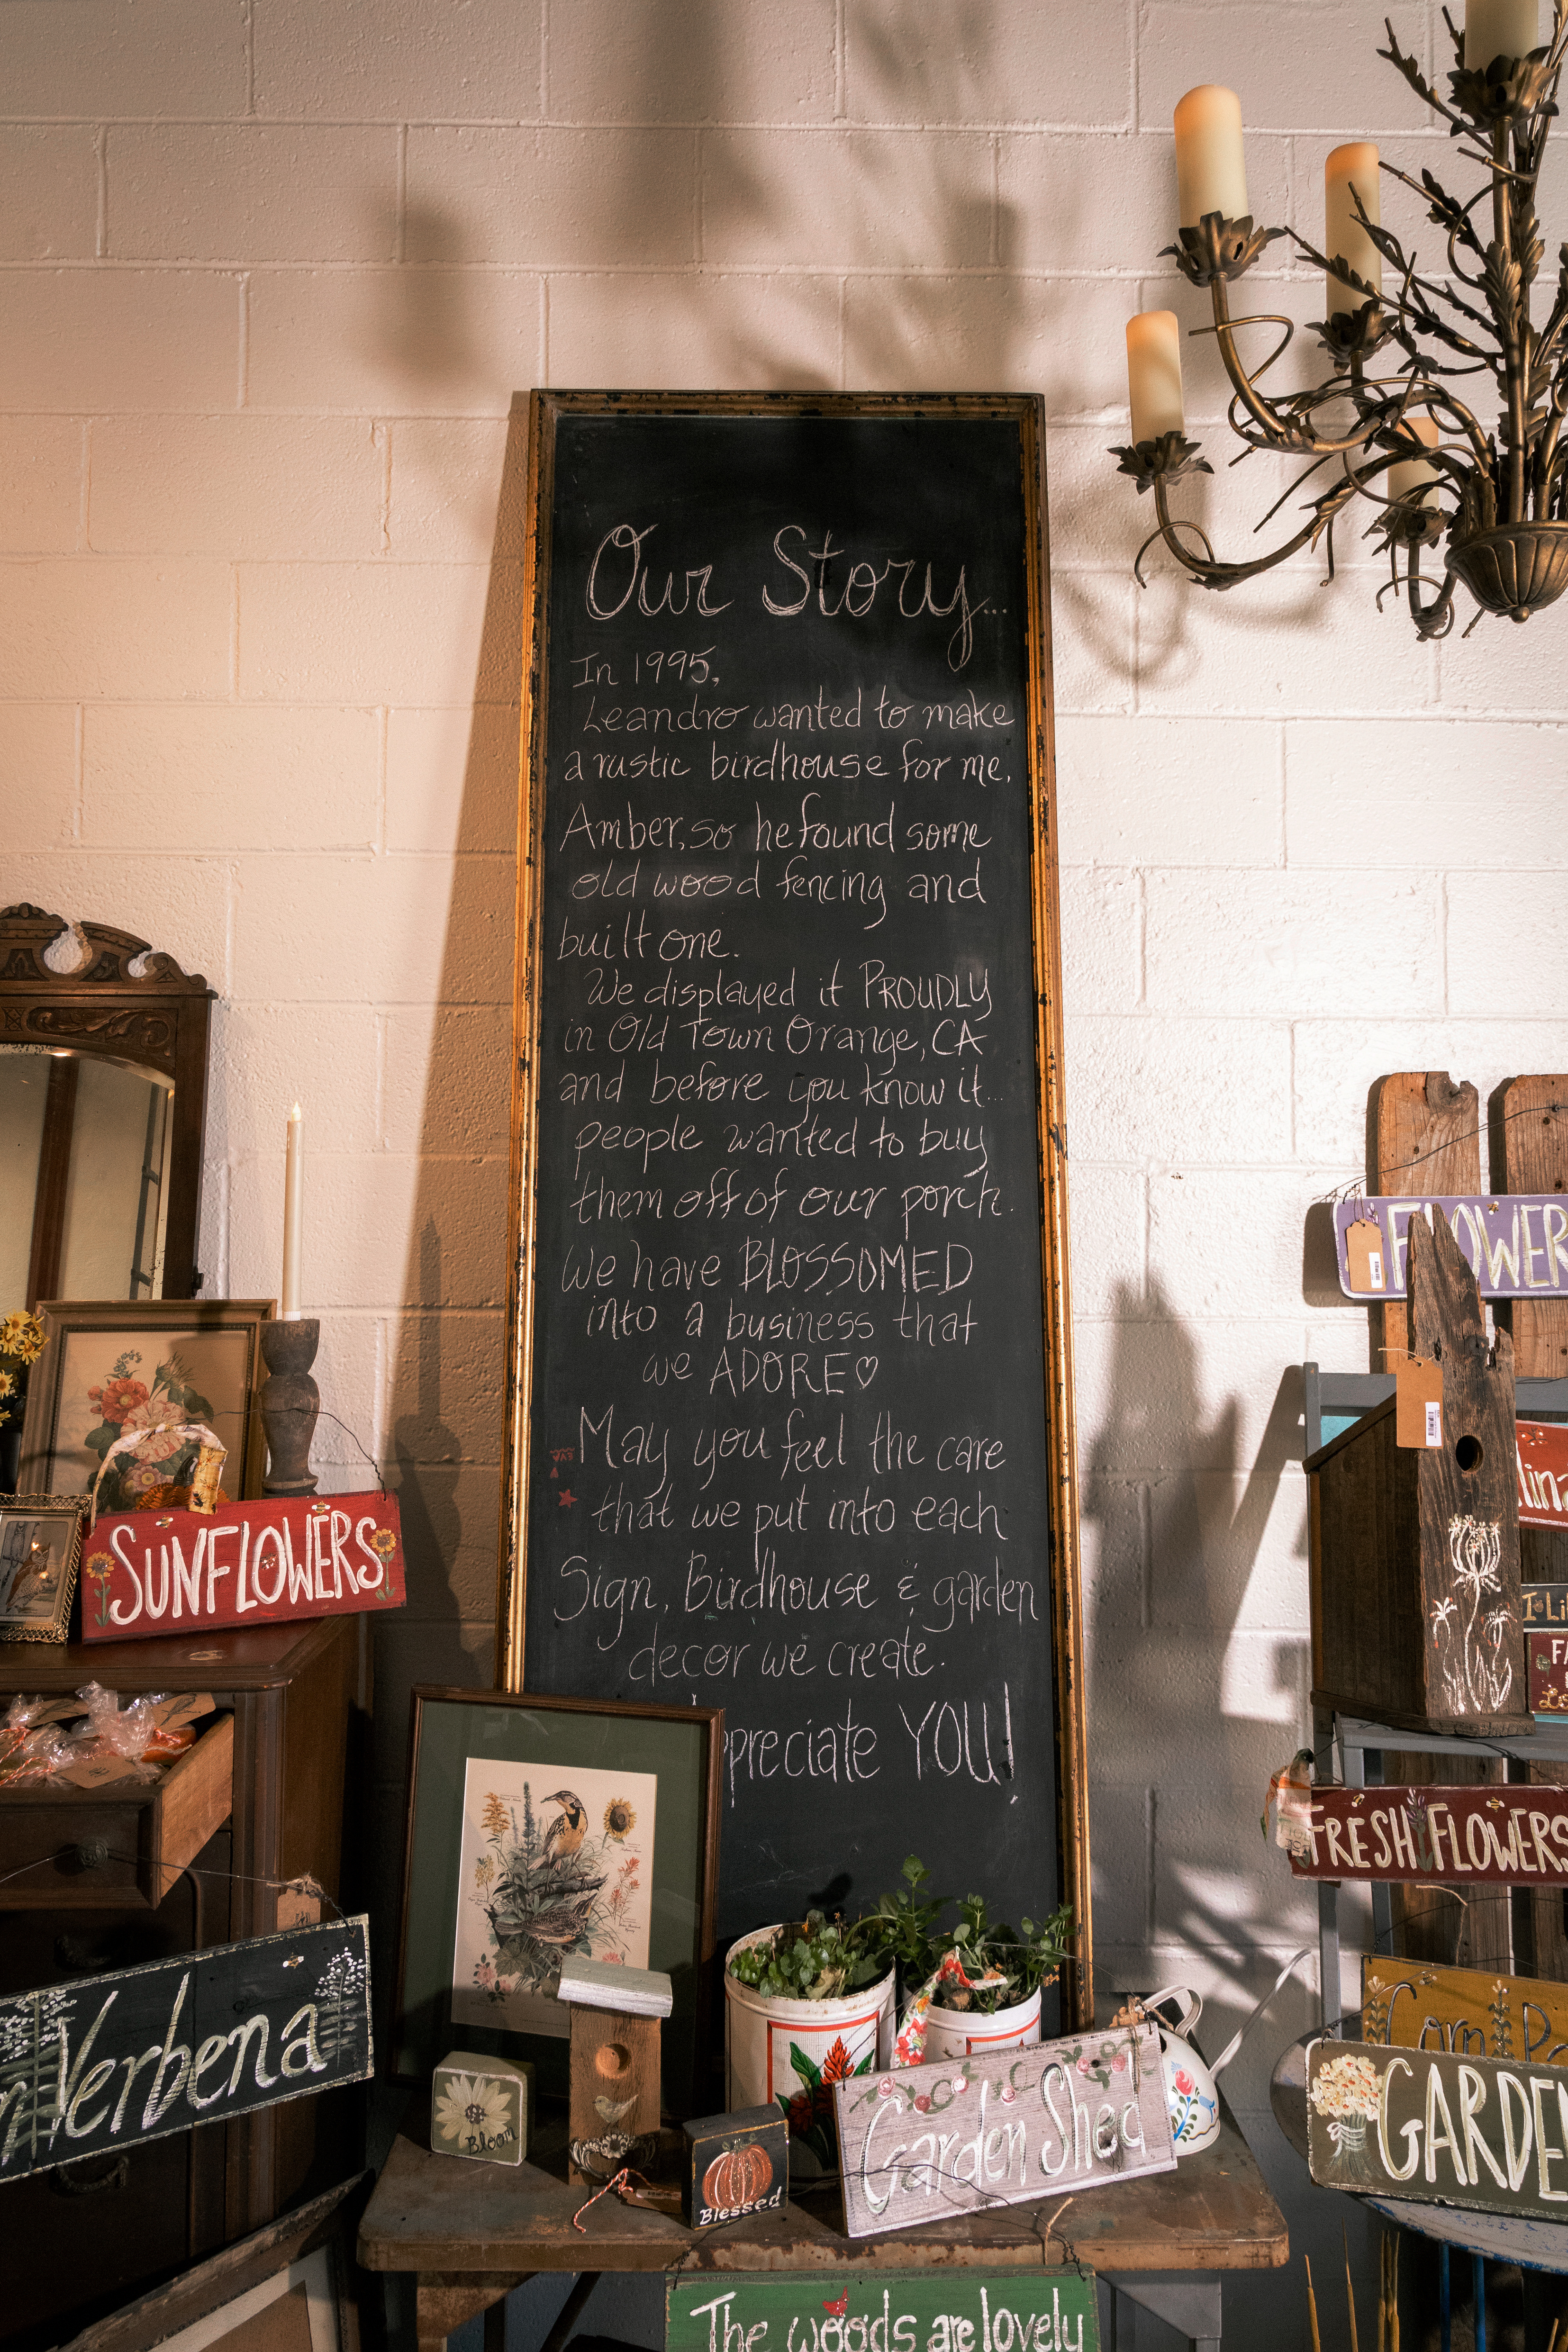 Our Story...
In 1995,
Leandro wanted to make
a rustic birdhouse for me,
Amber, so he found some
old wood fencing and
built one.
We displayed it PROUDLY
in Old Town Orange, CA
and before you know it...
people wanted to buy
them off of our porch.
We have BLOSSOMED
into a business that
we ADORE♡
May you feel the care
that we put into each
Sign, Birdhouse & garden
decor we create.
preciate YOU!
FLOWER
SUNFLOWERS
FRESH FLOWERS
Verbena
Bloom
Blessed
Garden Shed
Corn
GARDE
The woods are lovely